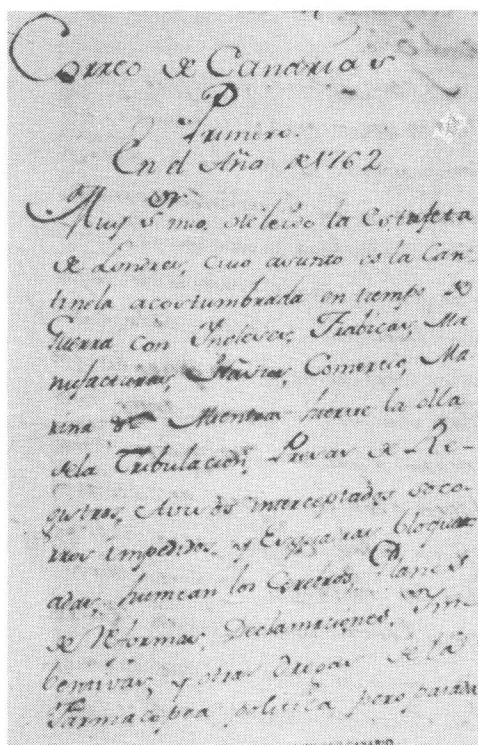 Correo de Canarias
Primero.
En el Año de 1762
Muy Sr. mio. He leido la Estafeta
de Londres, cuio asunto es la Can-
tinela acostumbrada en tiempo de
Guerra con Yngleses, Frabicas, Ma
nufacturas, Comercio, Ma
rina Mientras hierve la olla
dela Tribulacion, Presas de Re-
gistros, Avisos interceptados soco-
rros impedidos, y Esquadras bloque
adas, humean los Cerebros, Planes
de Reformas, Declamaciones, Ym
bectivas, y otras Drogas de la
Farmacopea politica, pero parada